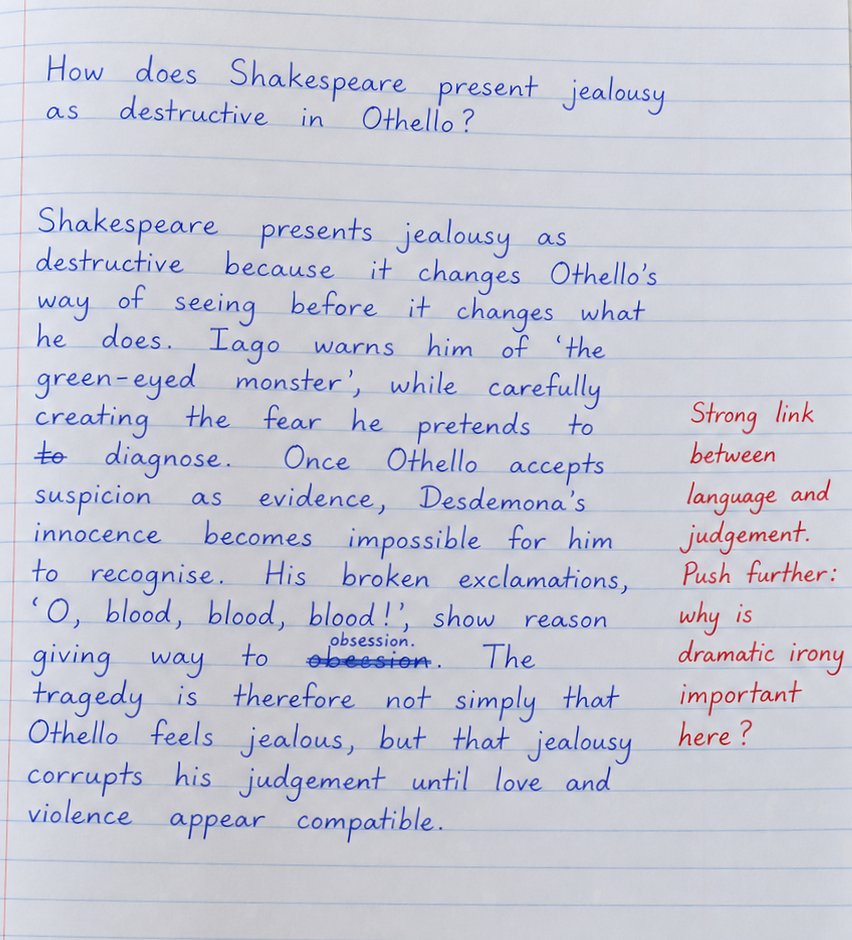 How does Shakespeare present jealousy
as destructive in Othello?
Shakespeare presents jealousy as
destructive because it changes Othello's
way of seeing before it changes what
he does. Iago warns him of ‘the
green-eyed monster’, while carefully
creating the fear he pretends to
to diagnose. Once Othello accepts
suspicion as evidence, Desdemona's
innocence becomes impossible for him
to recognise. His broken exclamations,
‘O, blood, blood, blood!’, show reason
obsession.
giving way to obeesion. The
tragedy is therefore not simply that
Othello feels jealous, but that jealousy
corrupts his judgement until love and
violence appear compatible.
Strong link
between
language and
judgement.
Push further:
why is
dramatic irony
important
here?